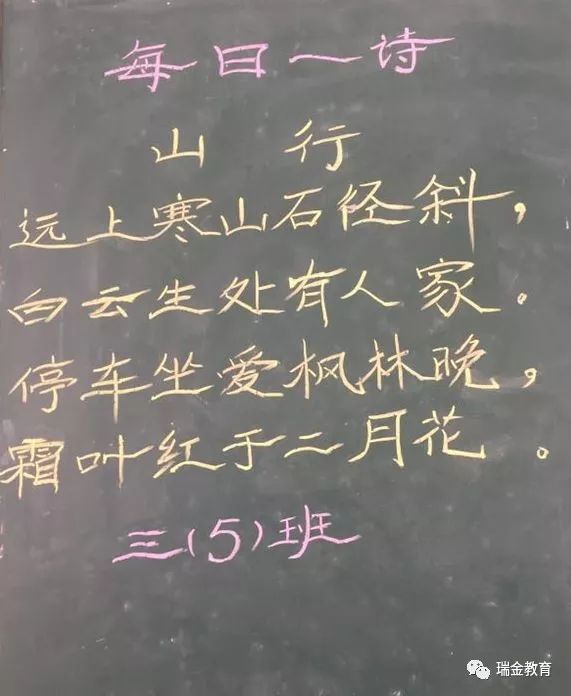 每日一诗
山 行
远上寒山石径斜，
白云生处有人家。
停车坐爱枫林晚，
霜叶红于二月花。
三(5)班
瑞金教育